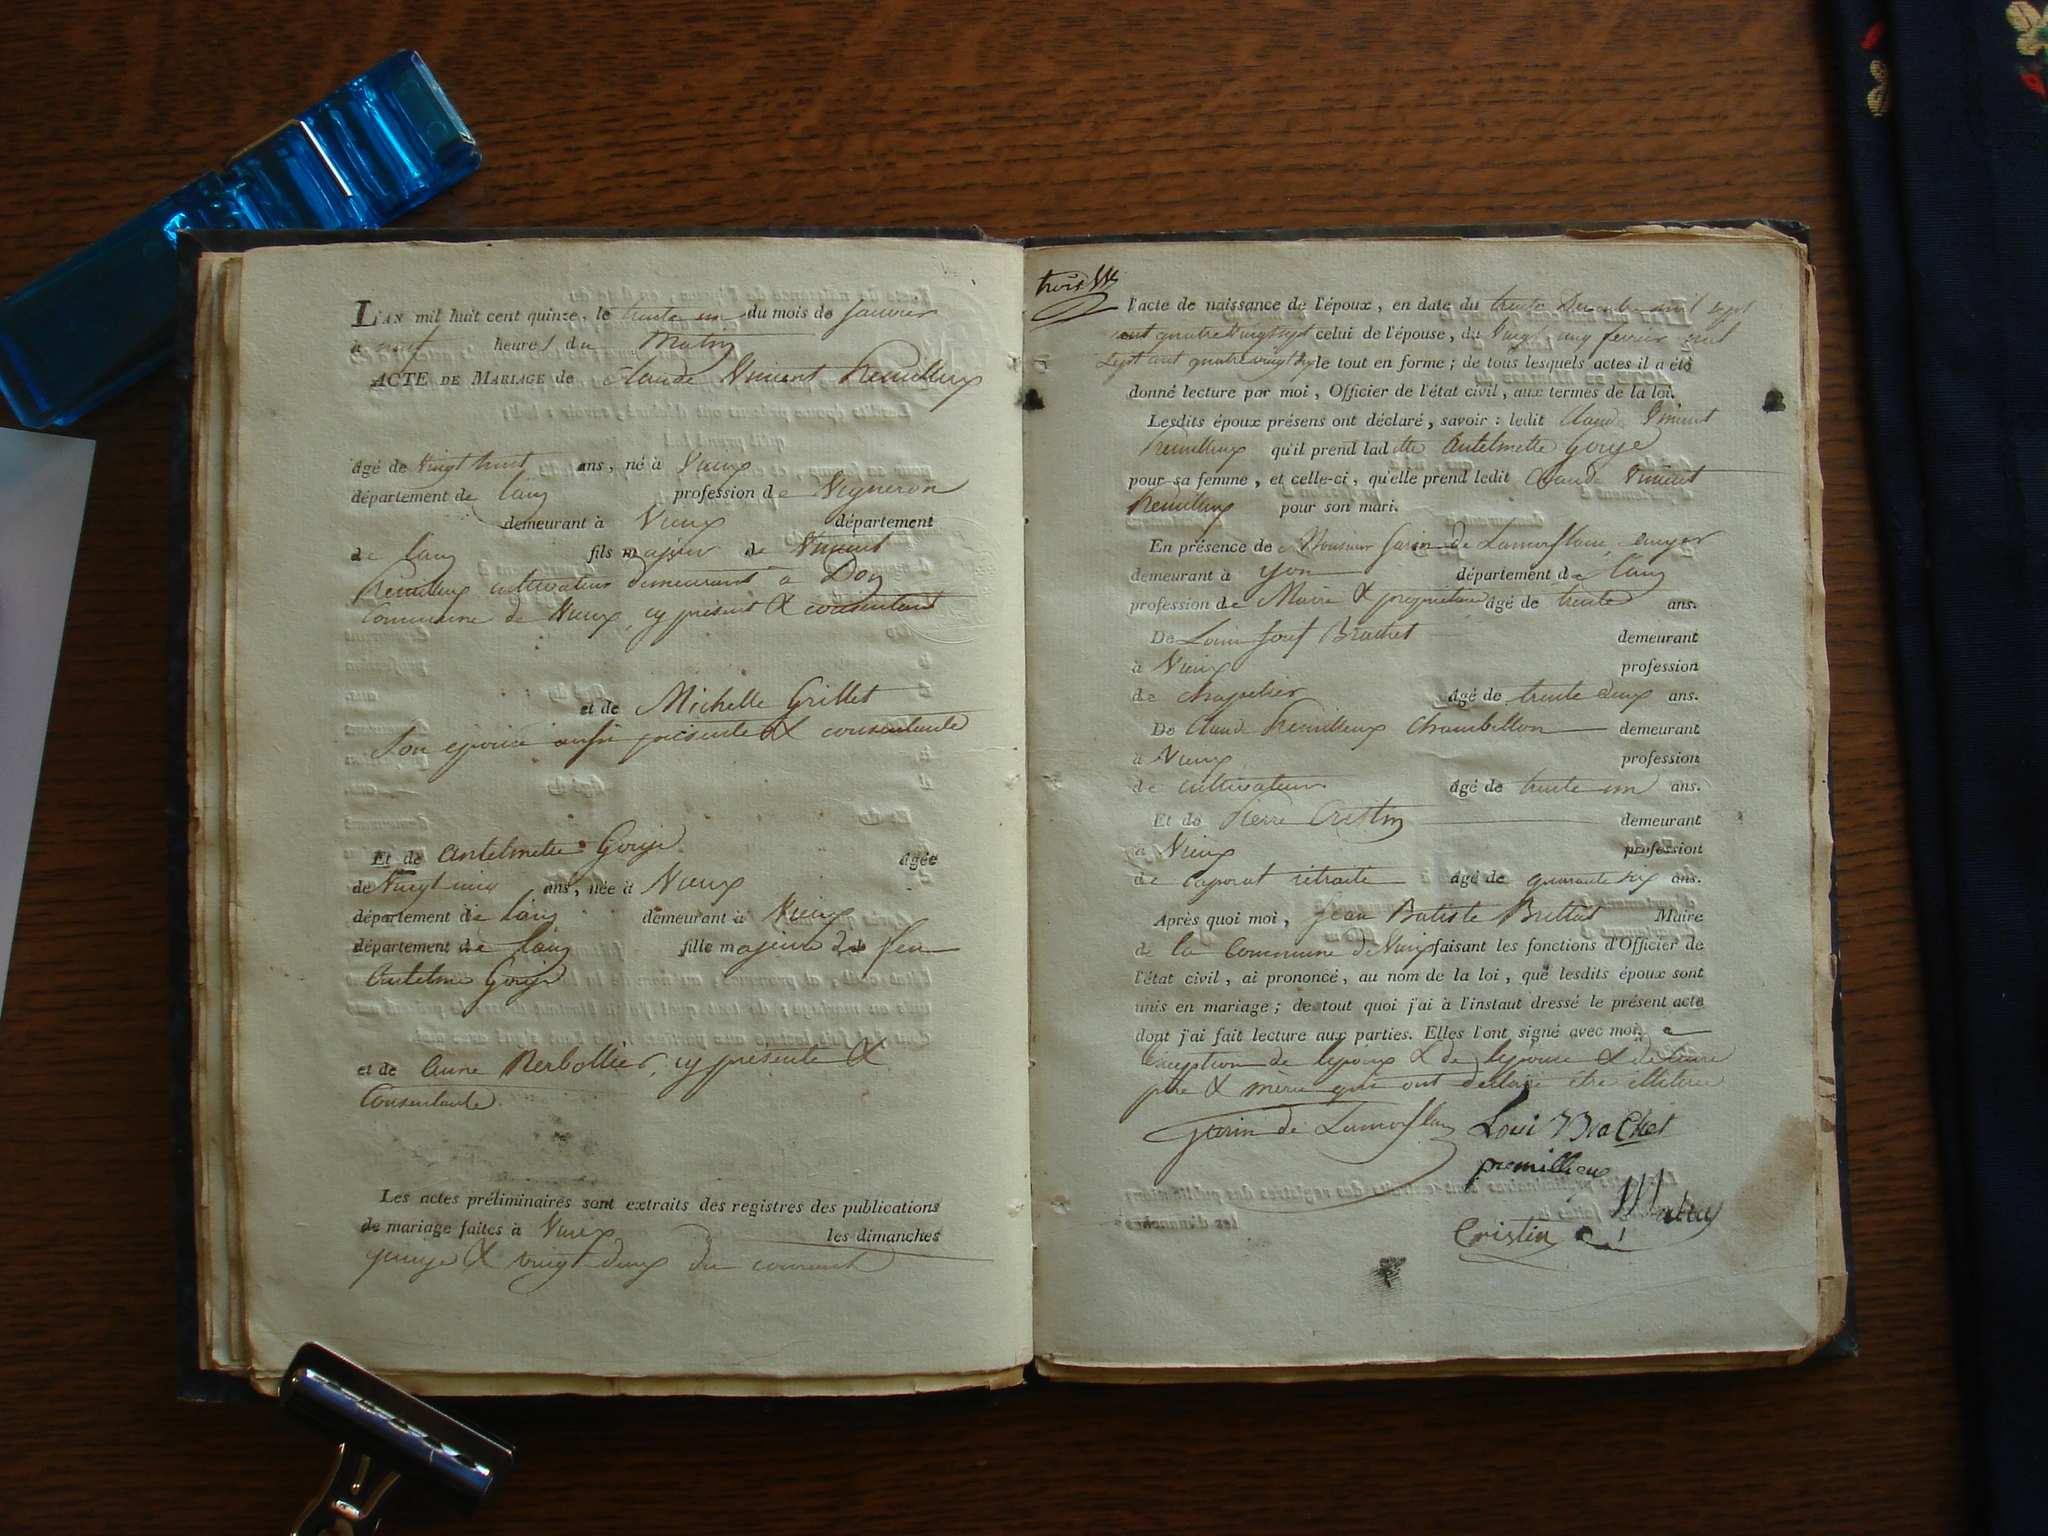 L'AN mil huit cent quinze, le trente un du mois de Janvier
à neuf heures du Matin
ACTE DE MARIAGE de Claude Vincent Remilleux
âgé de Vingt huit ans, né à Vieux
département de l'ain profession de Vigneron
demeurant à Vieux département
de l'ain fils majeur de Vincent
Remilleux cultivateur demeurant à Don
Commune de Vieux, cy présent & consentant
et de Michelle Grillet
Son epouse aussi présente & consentante
Et de Antelmette Gouje âgée
de Vingt cinq ans, née à Vieux
département de l'ain demeurant à Vieux
département de l'ain fille majeure de feu
Antelme Gouje
et de Anne Berbollier, cy présente &
Consentante
Les actes préliminaires sont extraits des registres des publications
de mariage faites à Vieux les dimanches
quinze & vingt deux du courant
trois
l'acte de naissance de l'époux, en date du trente Décembre mil sept
cent quatre Vingt sept celui de l'épouse, du Vingt cinq fevrier mil
Sept cent quatre vingt le tout en forme ; de tous lesquels actes il a été
donné lecture par moi, Officier de l'état civil, aux termes de la loi.
Lesdits époux présens ont déclaré, savoir : ledit Claude Vincent
Remilleux qu'il prend ladite Antelmette Gouje
pour sa femme, et celle-ci, qu'elle prend ledit Claude Vincent
Remilleux pour son mari.
En présence de Monsieur Garin de Lamorflan, ecuyer
demeurant à yon département de l'ain
profession de Maire & propriétaire âgé de trente ans.
De Louis Josef Brachet demeurant
à Vieux profession
de chapelier âgé de trente deux ans.
De Claude Remilleux Chambillon demeurant
à Vieux profession
de cultivateur âgé de trente un ans.
Et de Pierre Cristin demeurant
à Vieux profession
de caporal retraite âgé de quarante six ans.
Après quoi moi, Jean Batiste Brillat Maire
de la Commune de Vieux faisant les fonctions d'Officier de
l'état civil, ai prononcé, au nom de la loi, que lesdits époux sont
unis en mariage ; de tout quoi j'ai à l'instant dressé le présent acte
dont j'ai fait lecture aux parties. Elles l'ont signé avec moi. a
l'exception de l'époux & de l'épouse & de leurs
père & mère qui ont déclaré être illitérés
Garin de Lamorflan Loui Brachet
premillieux
Cristin